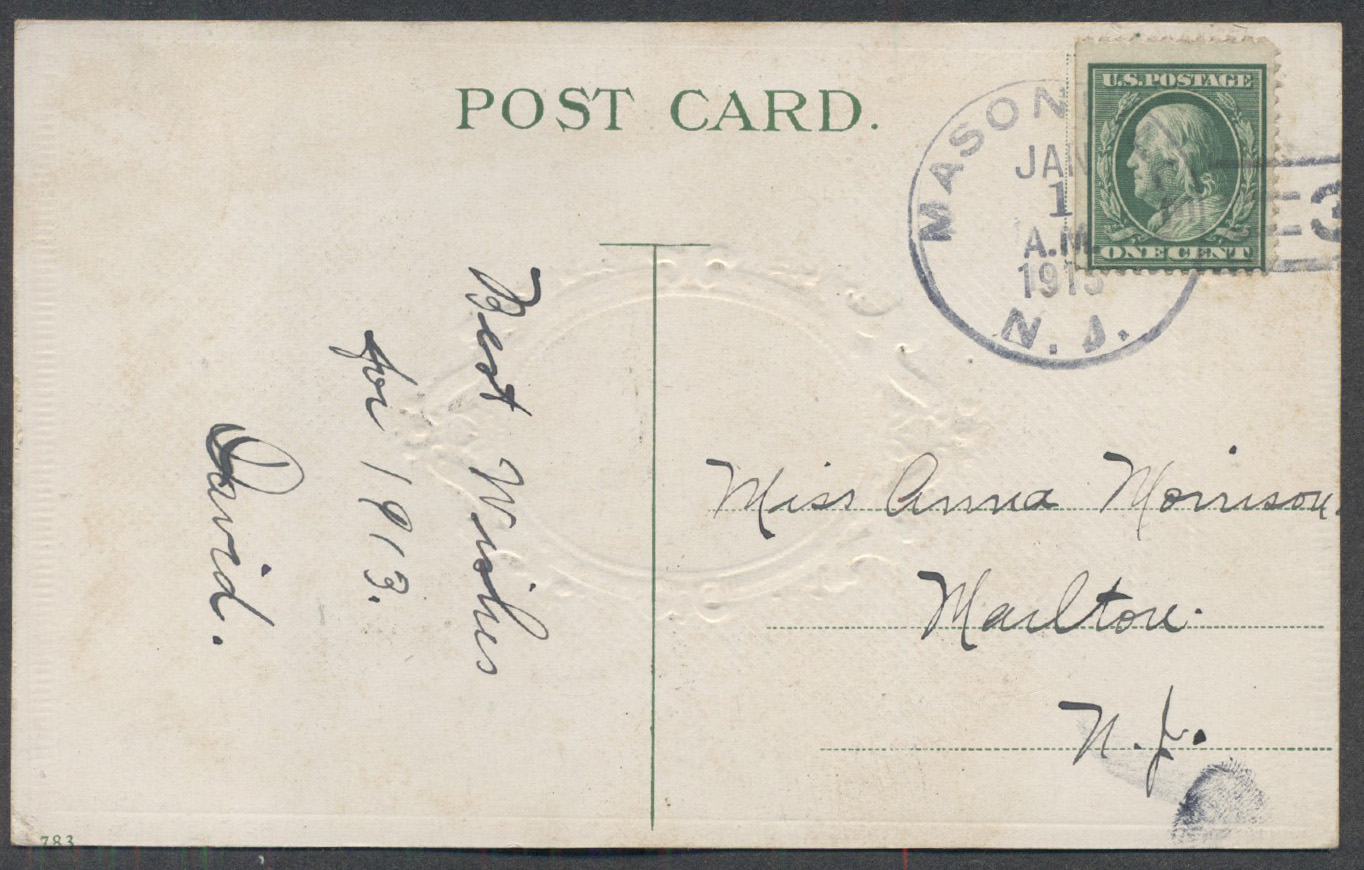 POST CARD.
U.S.POSTAGE
ONE CENT
MASON
JAN
1
A.M.
1913
N. J.
3
Best Wishes
for 1913.
David.
Miss Anna Morrison.
Marlton.
N.J.
783